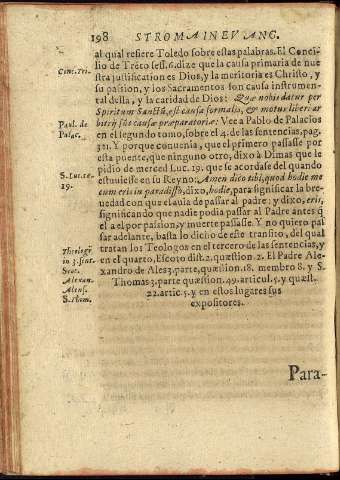 198 STROMA IN EVANG.
al qual refiere Toledo sobre estas palabras. El Conci-
Conc. Tri. lio de Trẽto sess. 6. dize que la causa primaria de nue
stra justification es Dios, y la meritoria es Christo, y
su passion, y los Sacramentos son causa instrumen-
tal della, y la caridad de Dios: Quæ nobis datur per
Spiritum Sanctũ, est causa formalis, & motus liberi ar
Paul. de bitrij sũt causæ præparatoriæ: Vee a Pablo de Palacios
Palac. en el segundo tomo, sobre el 4. de las sentencias, pag.
311. Y porque conuenia, que el primero passasse por
esta puente, que ninguno otro, dixo à Dimas que le
pidio de merced Luc. 19. que se acordasse del quando
S. Luc. ca. estuuiesse en su Reyno: Amen dico tibi, quod hodie me
19. cum eris in paradisso, dixo, hodie, para significar la bre-
uedad con que el auia de passar al padre: y dixo, eris,
significando que nadie podia passar al Padre antes q̃
el a el por passion, y muerte passasse. Y no quiero pas
sar adelante, basta lo dicho de este transito, del qual
Theologi tratan los Teologos en el tercero de las sentencias, y
in 3. sent. en el quarto, Escoto dist. 2. quæstion. 2. El Padre Ale-
Scot. xandro de Ales 3. parte, quæstion. 18. membro 8. y S.
Alexan. Thomas 3. parte quæstion. 49. articul. 5. y quæst.
Alens. 22. artic. 5. y en estos lugares sus
S. Thom. expositores.
Para-